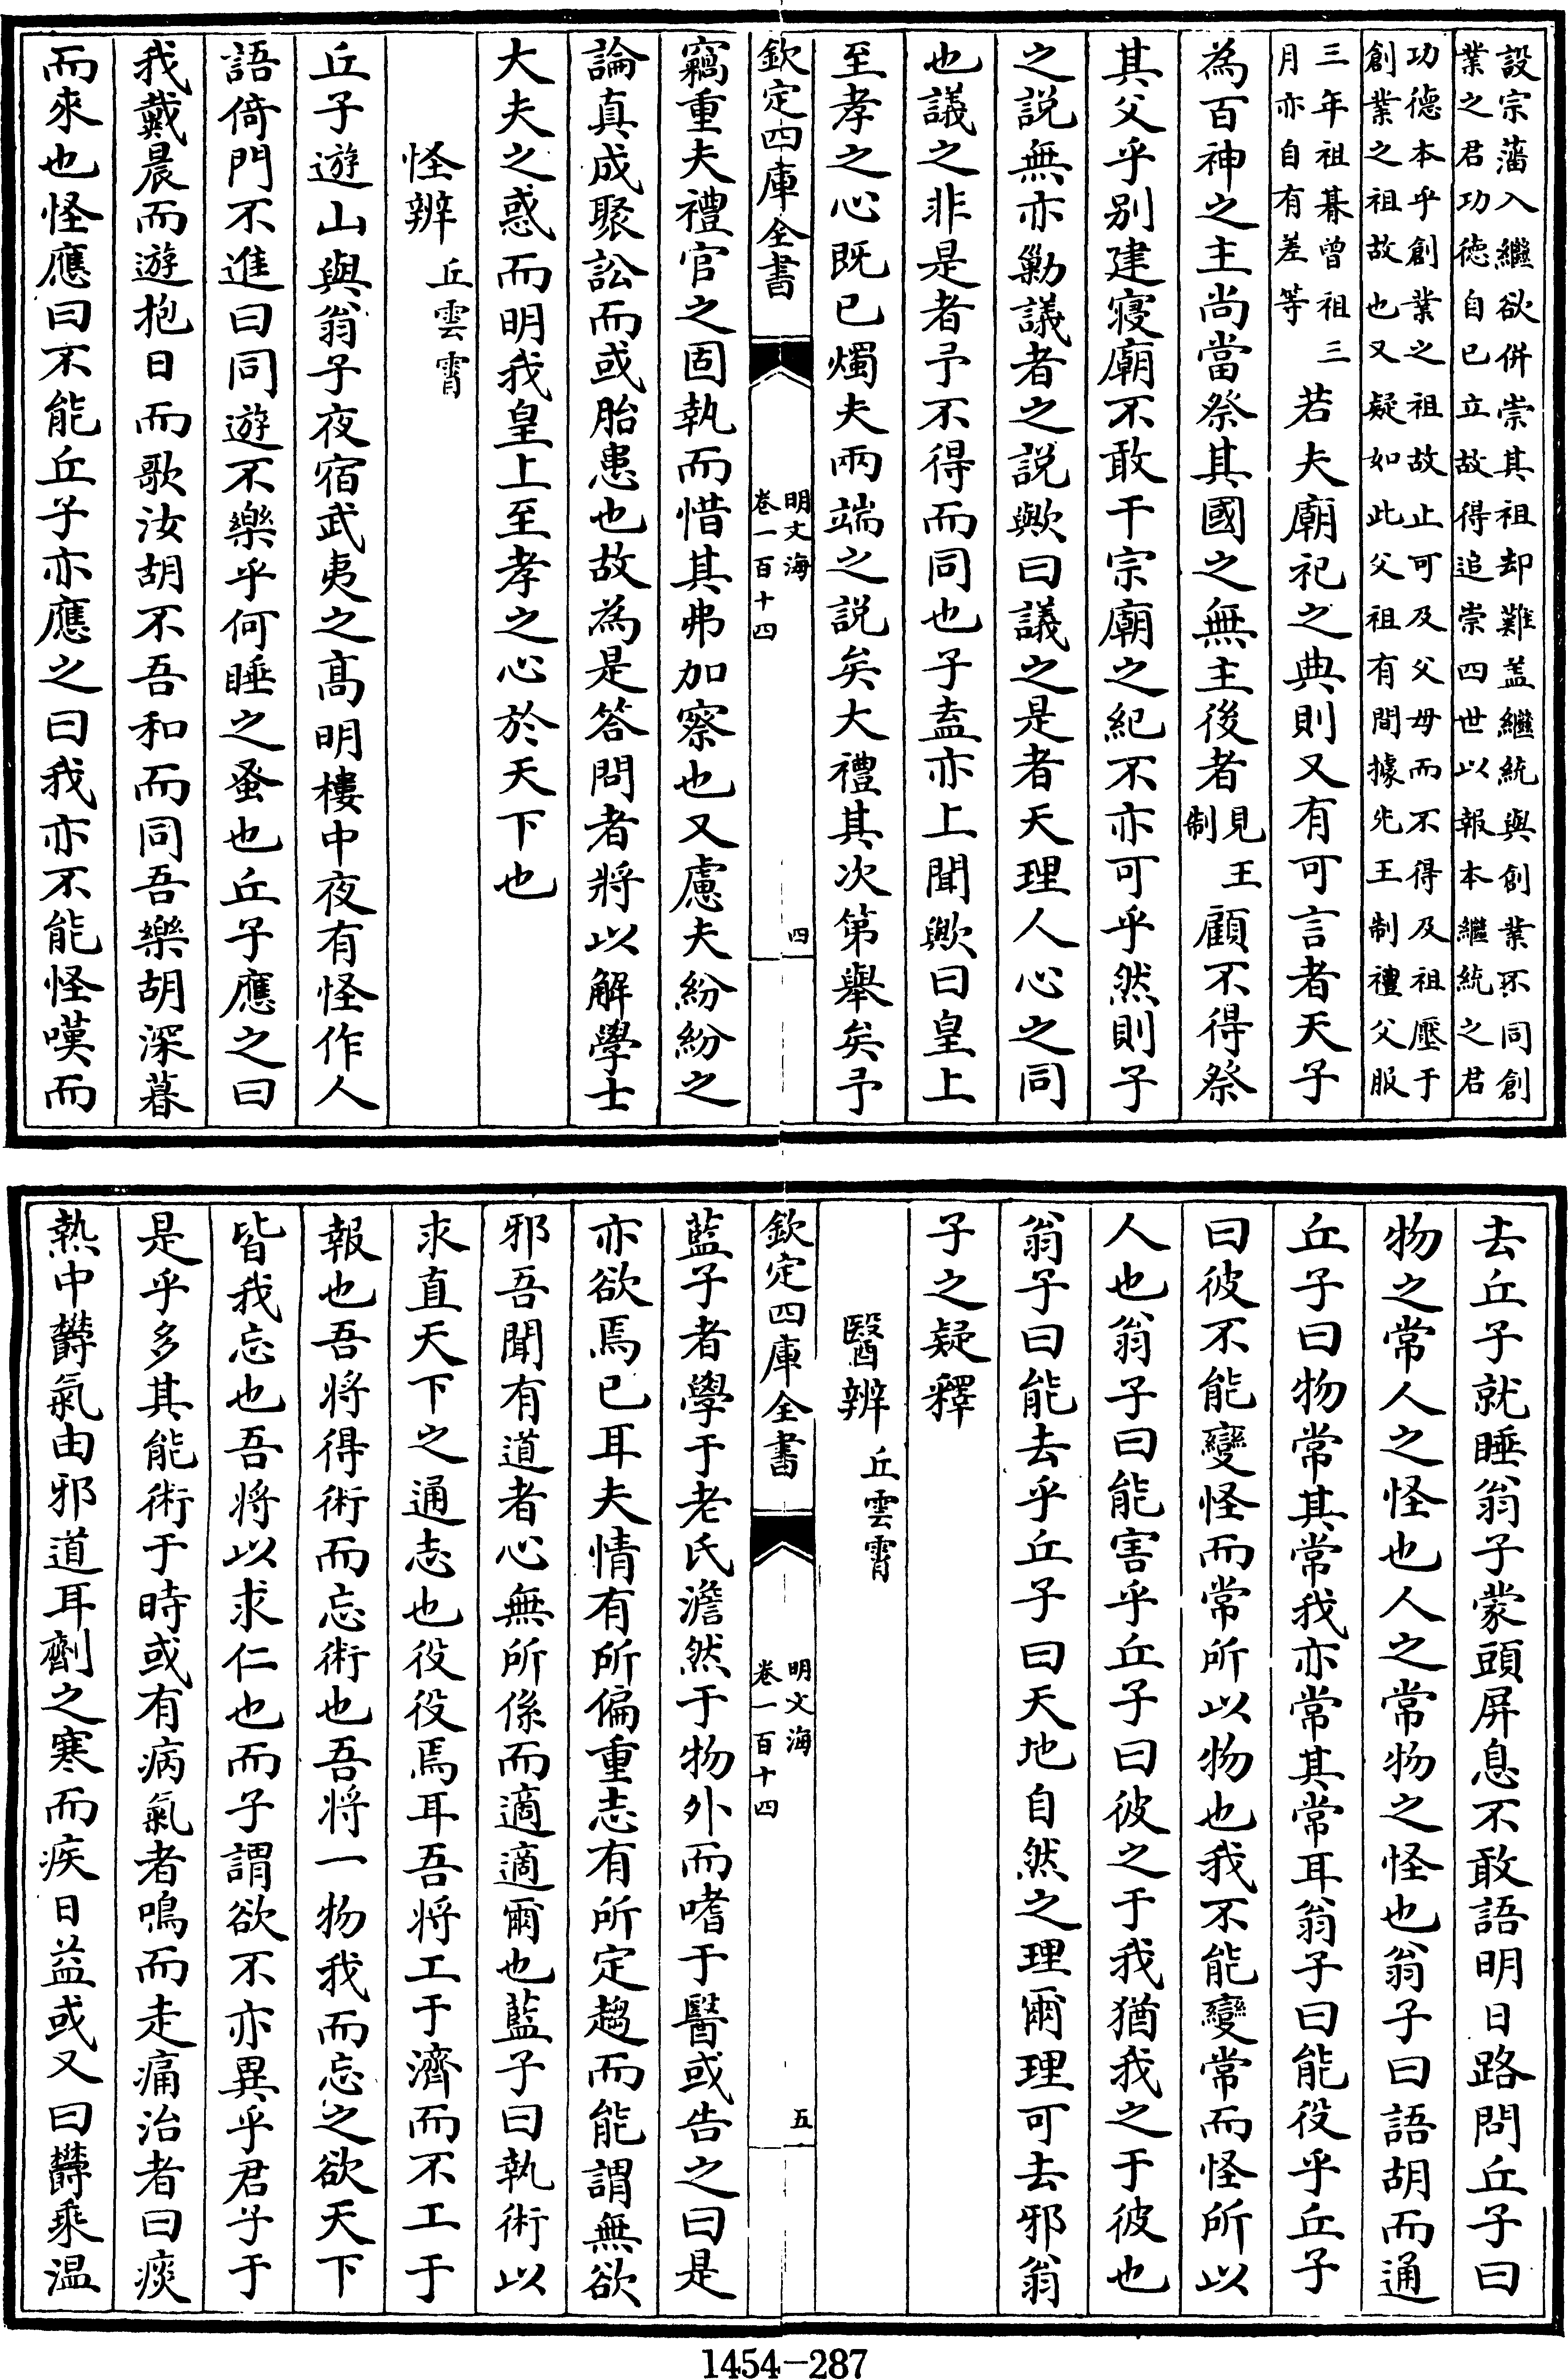 設宗藩入繼欲併崇其祖却難盖繼統與創業不同創
業之君功德自已立故得追崇四世以報本繼統之君
功德本乎創業之祖故止可及父母而不得及祖壓于
創業之祖故也又疑如此父祖有間據先王制禮父服
三年祖朞曾祖三
月亦自有差等
若夫廟祀之典則又有可言者天子
為百神之主尚當祭其國之無主後者
見王
制
顧不得祭
其父乎别建寝廟不敢干宗廟之紀不亦可乎然則子
之説無亦勦議者之説歟曰議之是者天理人心之同
也議之非是者予不得而同也子盍亦上聞歟曰皇上
至孝之心既已燭夫兩端之説矣大禮其次第舉矣予
欽定四庫全書
明文海
卷一百十四
四
竊重夫禮官之固執而惜其弗加察也又慮夫紛紛之
論真成聚訟而或胎患也故為是答問者將以解學士
大夫之惑而明我皇上至孝之心於天下也
怪辨
丘雲霄
丘子遊山與翁子夜宿武夷之髙明樓中夜有怪作人
語倚門不進曰同遊不樂乎何睡之蚤也丘子應之曰
我戴晨而遊抱日而歌汝胡不吾和而同吾樂胡深暮
而來也怪應曰不能丘子亦應之曰我亦不能怪嘆而
去丘子就睡翁子蒙頭屏息不敢語明日路問丘子曰
物之常人之怪也人之常物之怪也翁子曰語胡而通
丘子曰物常其常我亦常其常耳翁子曰能役乎丘子
曰彼不能變怪而常所以物也我不能變常而怪所以
人也翁子曰能害乎丘子曰彼之于我猶我之于彼也
翁子曰能去乎丘子曰天地自然之理爾理可去邪翁
子之疑釋
醫辨
丘雲霄
欽定四庫全書
明文海
卷一百十四
五
藍子者學于老氏澹然于物外而嗜于醫或告之曰是
亦欲焉已耳夫情有所偏重志有所定趨而能謂無欲
邪吾聞有道者心無所係而適適爾也藍子曰執術以
求直天下之通志也役役焉耳吾將工于濟而不工于
報也吾將得術而忘術也吾將一物我而忘之欲天下
皆我忘也吾將以求仁也而子謂欲不亦異乎君子于
是乎多其能術于時或有病氣者鳴而走痛治者曰痰
熱中欝氣由邪道耳劑之寒而疾日益或又曰欝乘温
1454—287